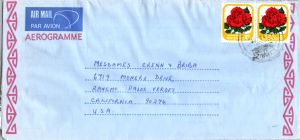 AIR MAIL
PAR AVION
AEROGRAMME
MESDAMES GRENN & ARIBA
6719 MOMERS DRIVE,
RANCHO PALOS VERDES
CALIFORNIA 90274
U.S.A.